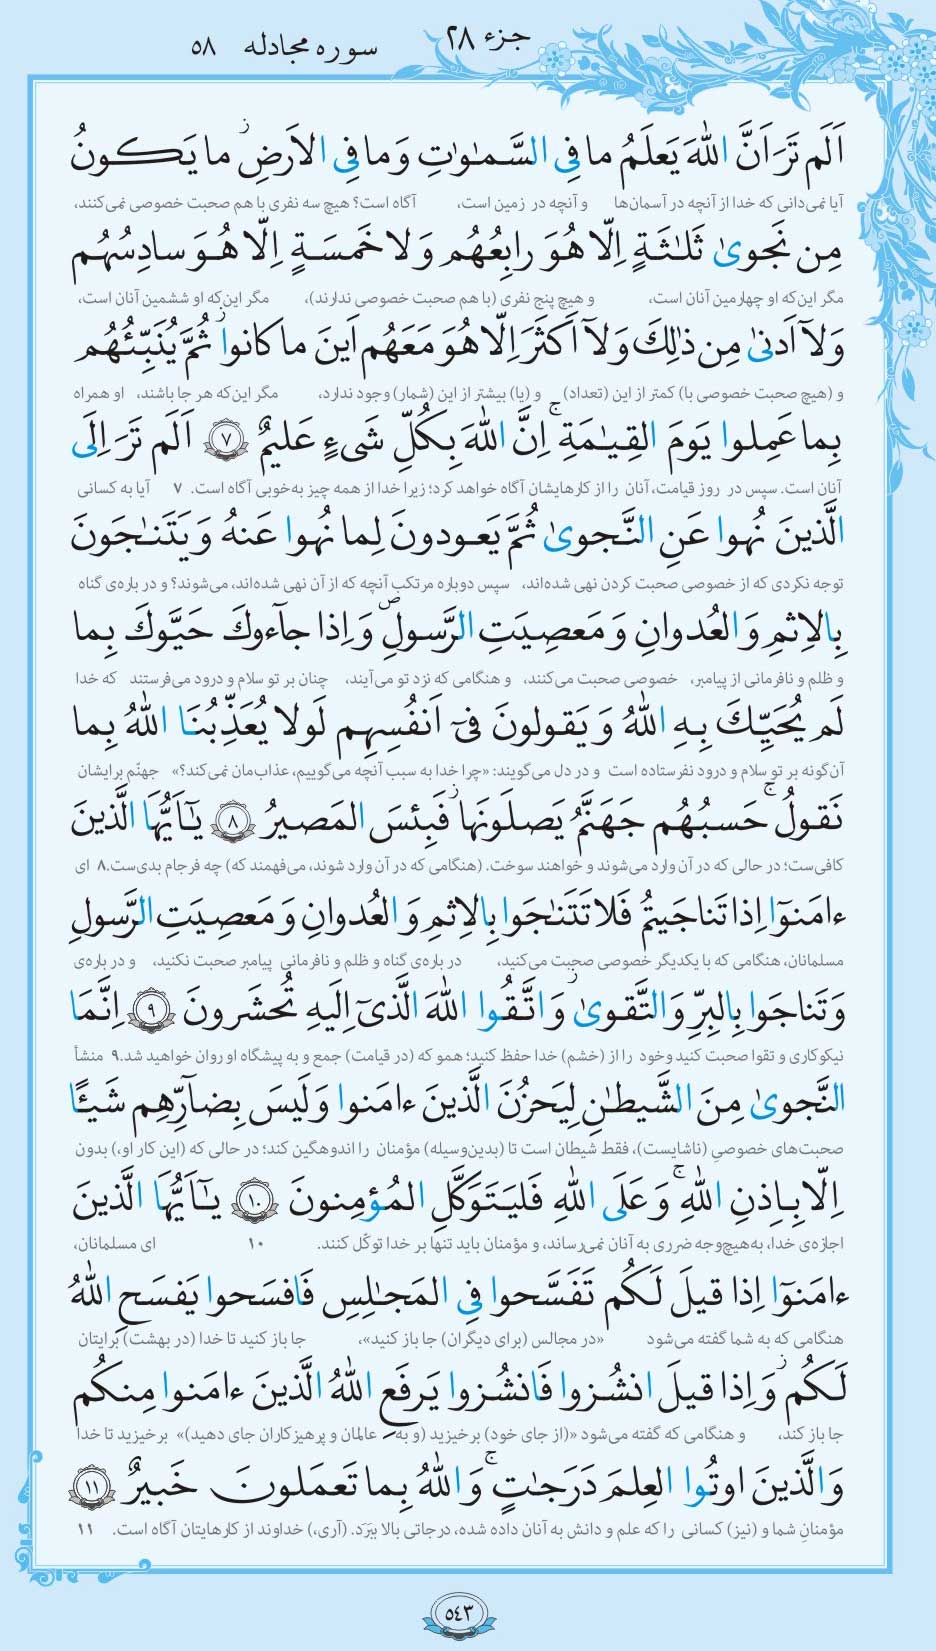 جزء ۲۸
سوره مجادله ۵۸
اَلَم تَرَ اَنَّ اللّٰهَ يَعلَمُ ما فِی السَّمٰوٰتِ وَ ما فِی الاَرضِ ز ما يَكونُ
آیا نمی‌دانی که خدا از آنچه در آسمان‌ها و آنچه در زمین است، آگاه است؟ هیچ سه نفری با هم صحبت خصوصی نمی‌کنند،
مِن نَجویٰ ثَلٰثَةٍ اِلّا هُوَ رابِعُهُم وَ لا خَمسَةٍ اِلّا هُوَ سادِسُهُم
مگر این‌که او چهارمین آنان است، و هیچ پنج نفری (با هم صحبت خصوصی ندارند)، مگر این‌که او ششمین آنان است،
وَ لآ اَدنیٰ مِن ذٰلِكَ وَ لآ اَكثَرَ اِلّا هُوَ مَعَهُم اَينَ ما كانوا ز ثُمَّ يُنَبِّئُهُم
و (هیچ صحبت خصوصی با) کمتر از این (تعداد) و (یا) بیشتر از این (شمار) وجود ندارد، مگر این‌که هر جا باشند، او همراه
بِما عَمِلوا يَومَ القِيٰمَةِ ۚ اِنَّ اللّٰهَ بِكُلِّ شَیءٍ عَليمٌ ﴿۷﴾ اَلَم تَرَ اِلَی
آنان است. سپس در روز قیامت، آنان را از کارهایشان آگاه خواهد کرد؛ زیرا خدا از همه چیز به‌خوبی آگاه است. ۷ آیا به کسانی
الَّذينَ نُهوا عَنِ النَّجویٰ ثُمَّ يَعودونَ لِما نُهوا عَنهُ وَ يَتَنٰجَونَ
توجه نکردی که از خصوصی صحبت کردن نهی شده‌اند، سپس دوباره مرتکب آنچه که از آن نهی شده‌اند، می‌شوند؟ و در باره‌ی گناه
بِالاِثمِ وَ العُدوانِ وَ مَعصِيَتِ الرَّسولِ ص وَ اِذا جآءوكَ حَيَّوكَ بِما
و ظلم و نافرمانی از پیامبر، خصوصی صحبت می‌کنند، و هنگامی که نزد تو می‌آیند، چنان بر تو سلام و درود می‌فرستند که خدا
لَم يُحَيِّكَ بِهِ اللّٰهُ وَ يَقولونَ فیٓ اَنفُسِهِم لَولا يُعَذِّبُنَا اللّٰهُ بِما
آن‌گونه بر تو سلام و درود نفرستاده است و در دل می‌گویند: «چرا خدا به سبب آنچه می‌گوییم، عذاب‌مان نمی‌کند؟» جهنّم برایشان
نَقولُ ۚ حَسبُهُم جَهَنَّمُ يَصلَونَها ز فَبِئسَ المَصيرُ ﴿۸﴾ يٰٓاَيُّهَا الَّذينَ
کافی‌ست؛ در حالی که در آن وارد می‌شوند و خواهند سوخت. (هنگامی که در آن وارد شوند، می‌فهمند که) چه فرجام بدی‌ست. ۸ ای
ءامَنوٓا اِذا تَناجَيتُم فَلا تَتَنٰجَوا بِالاِثمِ وَ العُدوانِ وَ مَعصِيَتِ الرَّسولِ
مسلمانان، هنگامی که با یکدیگر خصوصی صحبت می‌کنید، در باره‌ی گناه و ظلم و نافرمانی پیامبر صحبت نکنید، و در باره‌ی
وَ تَناجَوا بِالبِرِّ وَ التَّقویٰ ز وَ اتَّقُوا اللّٰهَ الَّذیٓ اِلَيهِ تُحشَرونَ ﴿۹﴾ اِنَّمَا
نیکوکاری و تقوا صحبت کنید وخود را از (خشم) خدا حفظ کنید؛ همو که (در قیامت) جمع و به پیشگاه او روان خواهید شد. ۹ منشأ
النَّجویٰ مِنَ الشَّيطٰنِ لِيَحزُنَ الَّذينَ ءامَنوا وَ لَيسَ بِضآرِّهِم شَيـًٔا
صحبت‌های خصوصیِ (ناشایست)، فقط شیطان است تا (بدین‌وسیله) مؤمنان را اندوهگین کند؛ در حالی که (این کار او،) بدون
اِلّا بِاِذنِ اللّٰهِ ۚ وَ عَلَی اللّٰهِ فَليَتَوَكَّلِ المُؤمِنونَ ﴿۱۰﴾ يٰٓاَيُّهَا الَّذينَ
اجازه‌ی خدا، به‌هیچ‌وجه ضرری به آنان نمی‌رساند، و مؤمنان باید تنها بر خدا توکّل کنند. ۱۰ ای مسلمانان،
ءامَنوٓا اِذا قيلَ لَكُم تَفَسَّحوا فِی المَجٰلِسِ فَافسَحوا يَفسَحِ اللّٰهُ
هنگامی که به شما گفته می‌شود «در مجالس (برای دیگران) جا باز کنید»، جا باز کنید تا خدا (در بهشت) برایتان
لَكُم ز وَ اِذا قيلَ انشُزوا فَانشُزوا يَرفَعِ اللّٰهُ الَّذينَ ءامَنوا مِنكُم
جا باز کند، و هنگامی که گفته می‌شود «(از جای خود) برخیزید (و به عالمان و پرهیزکاران جای دهید)» برخیزید تا خدا
وَ الَّذينَ اوتُوا العِلمَ دَرَجٰتٍ ۚ وَ اللّٰهُ بِما تَعمَلونَ خَبيرٌ ﴿۱۱﴾
مؤمنانِ شما و (نیز) کسانی را که علم و دانش به آنان داده شده، درجاتی بالا ببَرَد. (آری،) خداوند از کارهایتان آگاه است. ۱۱
۵۴۳